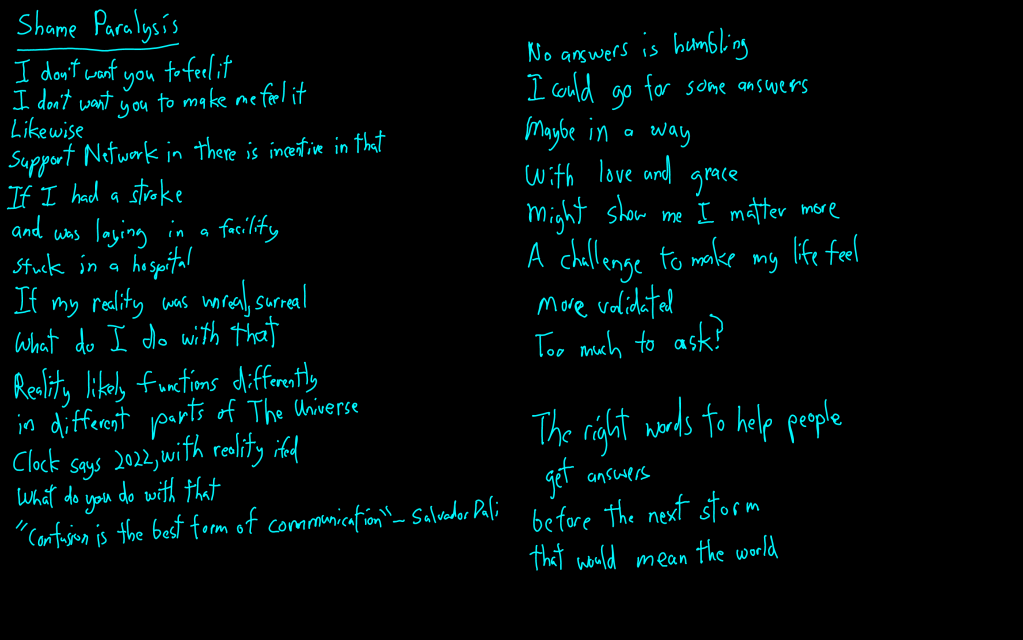 Shame Paralysis
I don't want you to feel it
I don't want you to make me feel it
Likewise
Support Network in there is incentive in that
If I had a stroke
and was laying in a facility
stuck in a hospital
If my reality was unreal, surreal
What do I do with that
Reality likely functions differently
in different parts of The Universe
Clock says 2022, with reality ifed
What do you do with that
"Confusion is the best form of communication" - Salvador Dali
No answers is humbling
I could go for some answers
Maybe in a way
With love and grace
Might show me I matter more
A challenge to make my life feel
more validated
Too much to ask?
The right words to help people
get answers
before the next storm
that would mean the world